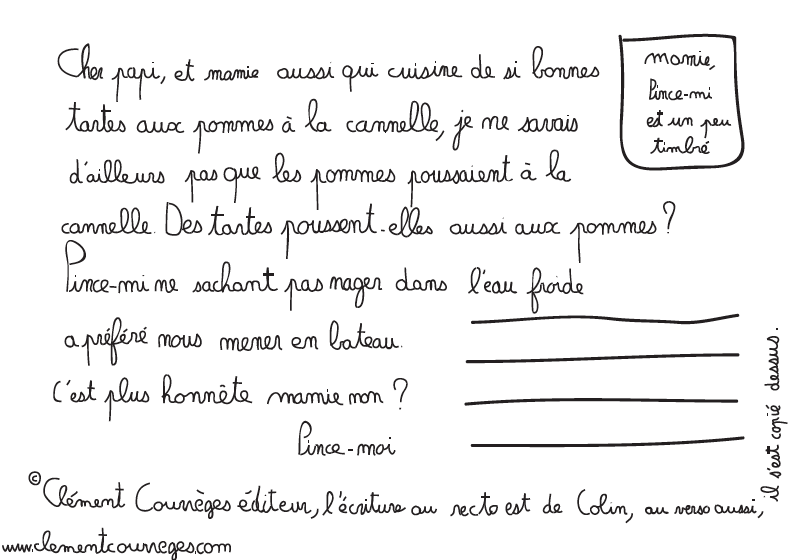 Cher papi, et mamie aussi qui cuisine de si bonnes
tartes aux pommes à la cannelle, je ne savais
d'ailleurs pas que les pommes poussaient à la
cannelle. Des tartes poussent-elles aussi aux pommes ?
Pince-mi ne sachant pas nager dans l'eau froide
a préféré nous mener en bateau.
C'est plus honnête mamie non ?
Pince-moi
mamie,
Pince-mi
est un peu
timbré
© Clément Courrèges éditeur, l'écriture au recto est de Colin, au verso aussi,
il s'est copié dessus.
www.clementcourreges.com